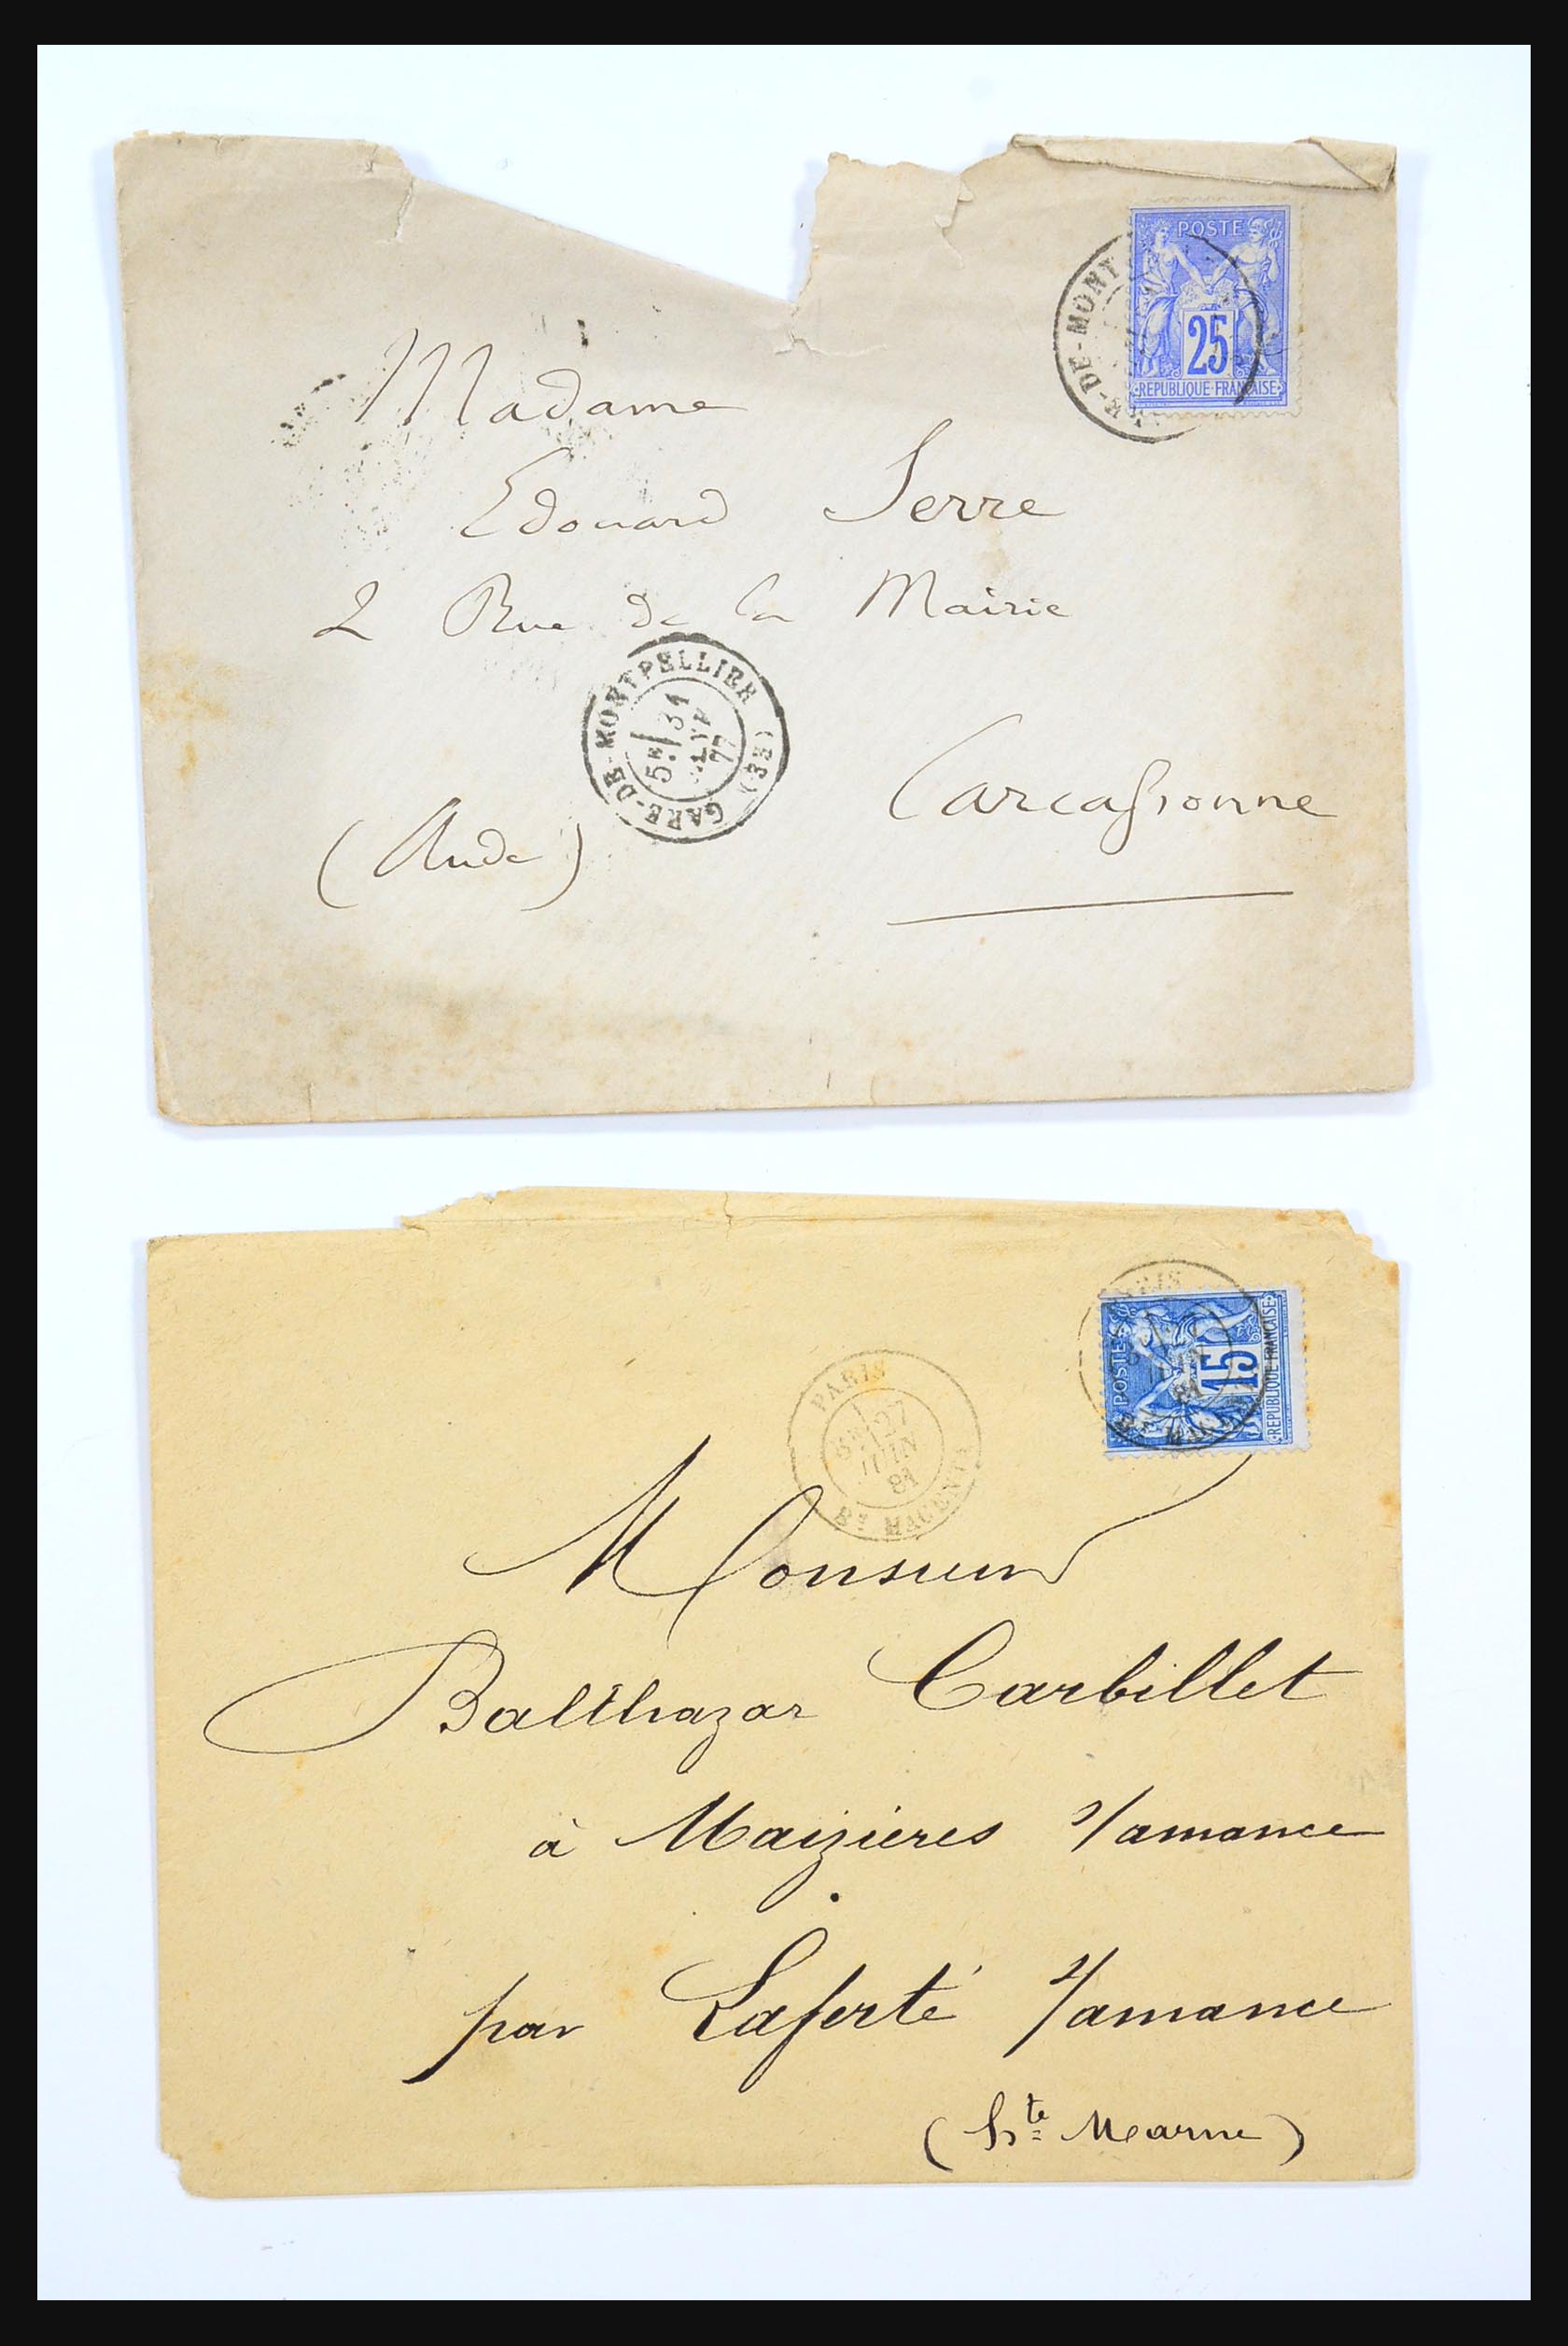 POSTE
25
REPUBLIQUE FRANÇAISE
DE-MONT
Madame
Edouard Serre
2 Rue de la Mairie
GARE-DE-MONTPELLIER (33)
5E 31
77
Carcassonne
(Aude)
POSTES
15
REPUBLIQUE FRANÇAISE
PARIS
81
PARIS
27
JUIN
81
Bd MAGENTA
Monsieur
Balthazar Carbillet
à Maizières s/amance
par Laferté s/amance
(hte Marne)